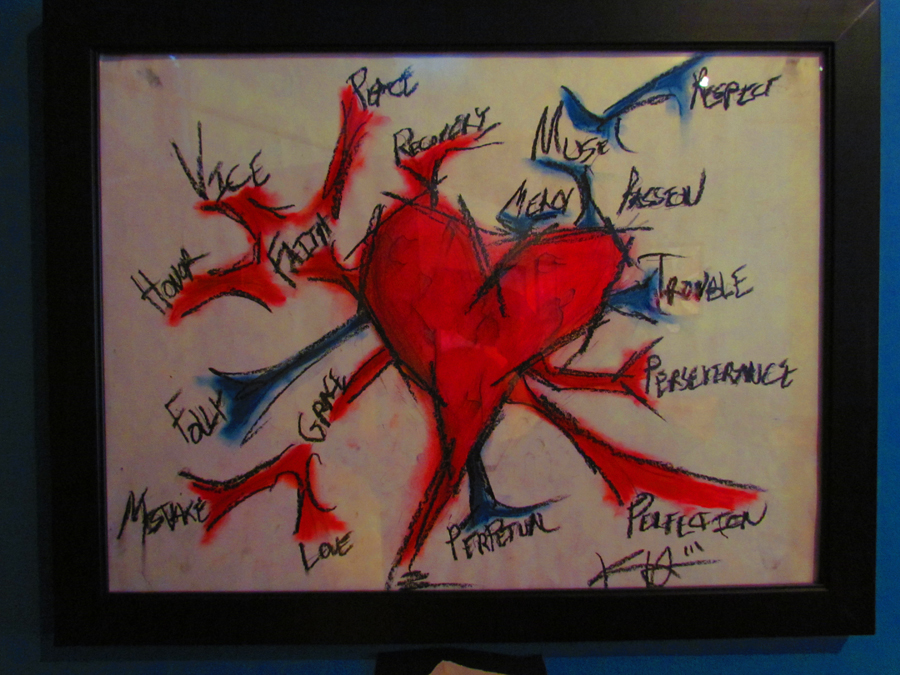 PEACE
RESPECT
RECOVERY
MUSE
VICE
MERCY
PASSION
FAITH
HONOR
TROUBLE
PERSEVERANCE
FOLLY
GRACE
MISTAKE
LOVE
PERPETUAL
PERFECTION